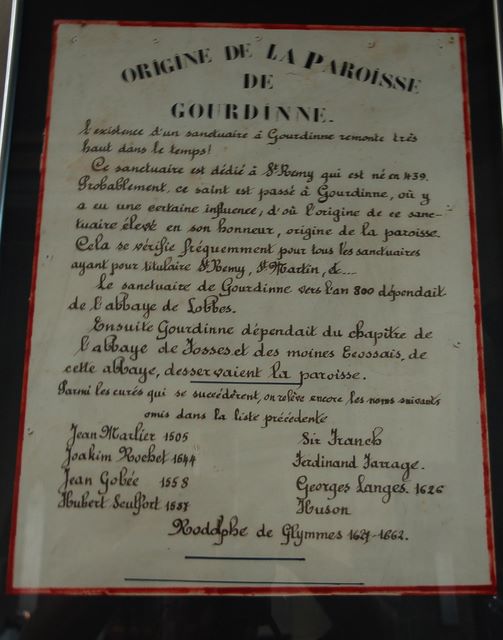 ORIGINE DE LA PAROISSE
DE
GOURDINNE.
L'existence d'un sanctuaire à Gourdinne remonte très
haut dans le temps!
Ce sanctuaire est dédié à St Remy qui est né en 439.
Probablement, ce saint est passé à Gourdinne, où y
a eu une certaine influence, d'où l'origine de ce sanc-
tuaire élevé en son honneur, origine de la paroisse.
Cela se vérifie fréquemment pour tous les sanctuaires
ayant pour titulaire St Remy, St Martin, &...
Le sanctuaire de Gourdinne vers l'an 800 dépendait
de l'abbaye de Lobbes.
Ensuite Gourdinne dépendait du chapitre de
l'abbaye de Fosses et des moines Ecossais, de
cette abbaye, desservaient la paroisse.
Parmi les curés qui se succédèrent, on relève encore les noms suivants
omis dans la liste précédente
Jean Marlier 1505 Sir Franck
Joakim Rochet 1544 Ferdinand Farrage.
Jean Gobée 1558 Georges Langes. 1626
Hubert Seulfort 1587 Huson
Rodolphe de Glymmes 1627-1662.